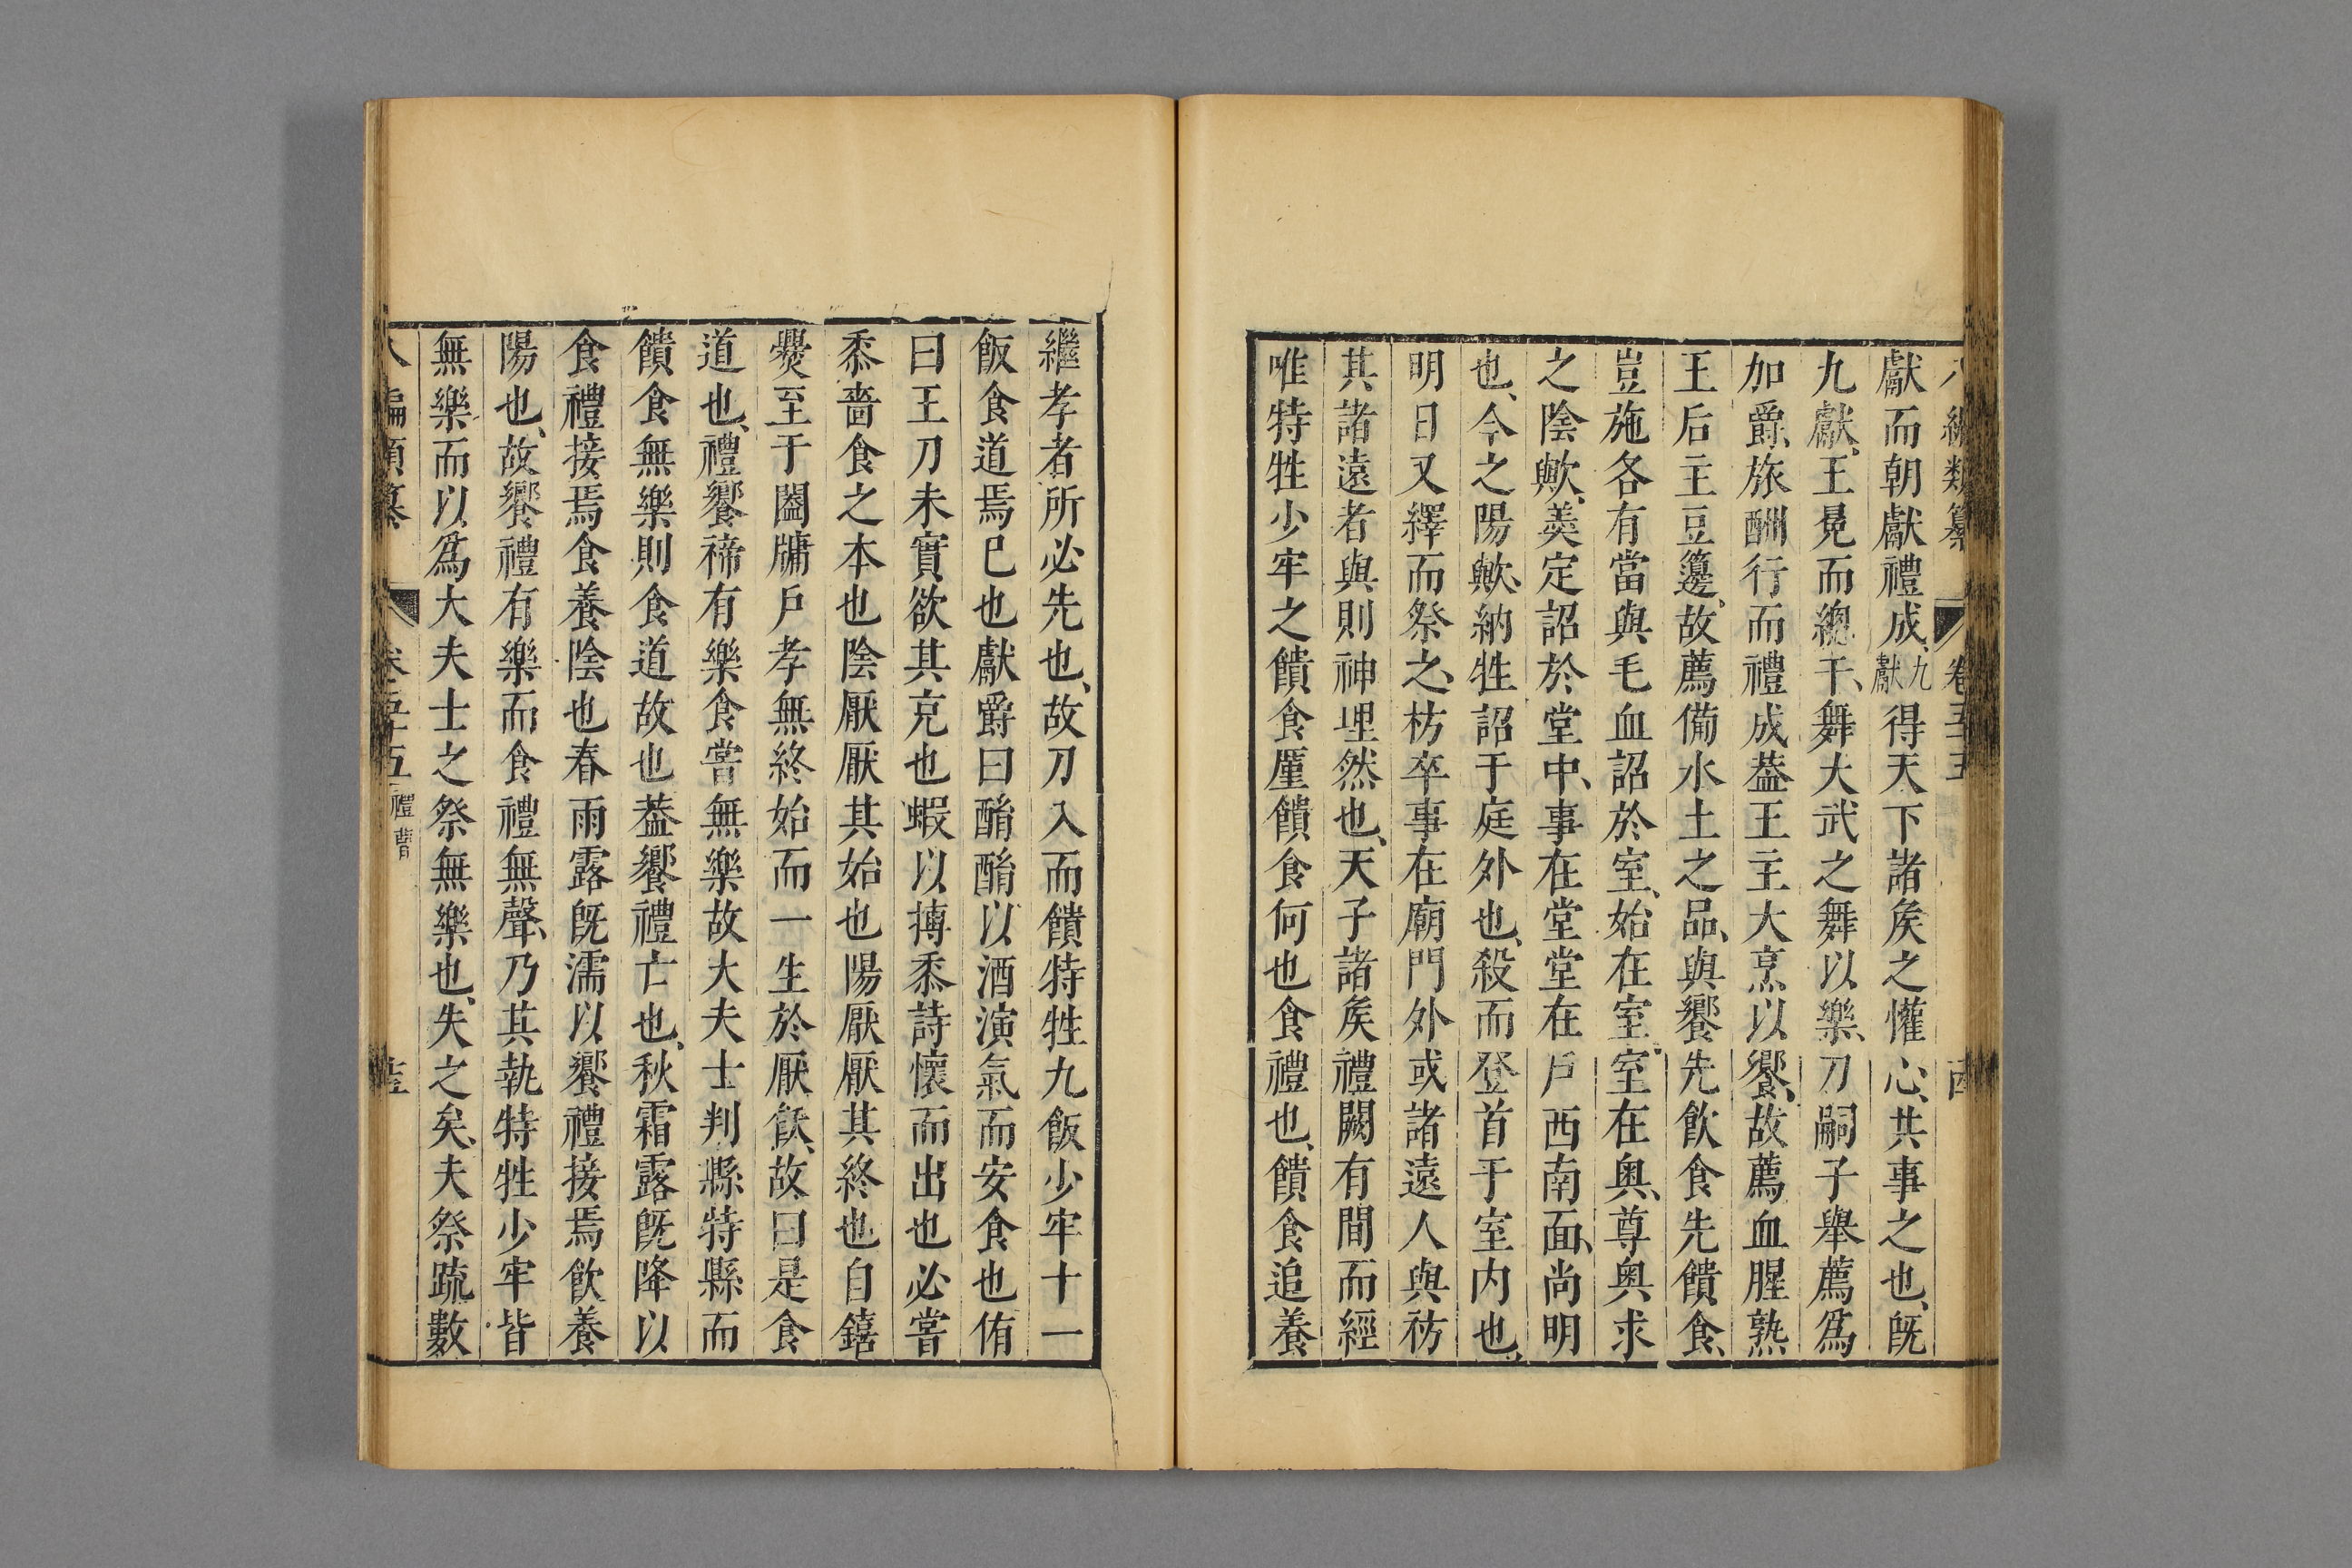 八編類纂 卷五十五
獻而朝獻禮成、九獻得天下諸矦之懽心、共事之也、旣
九獻、王冕而緫干、舞大武之舞以樂、刀嗣子舉薦爲
加爵、旅酬行而禮成葢王主大烹以饗、故薦血腥熟
王后主豆籩、故薦備水土之品、與饗先飲食先饋食、
豈施各有當與毛血詔於室、始在室、室在奥、尊奥求
之陰歟、羮定詔於堂中、事在堂堂在戶西南面、尚明
也、今之陽歟、納牲詔于庭外也、殺而登首于室内也、
明日又繹而祭之、枋卒事在廟門外或諸遠人與祊
其諸遠者與則神理然也、天子諸矦禮闕有間而經
唯特牲少牢之饋食厪饋食何也食禮也、饋食追養
繼孝者所必先也、故刀入而饋特牲九飯少牢十一
飯食道焉已也獻爵曰酳酳以酒演氣而安食也侑
曰王刀未實欲其克也蝦以摶黍詩懷而出也必嘗
黍嗇食之本也陰厭厭其始也陽厭厭其終也自饎
爨至于闔牗戶孝無終始而一生於厭飫、故曰是食
道也、禮饗禘有樂食嘗無樂故大夫士判縣特縣而
饋食無樂則食道故也葢饗禮亡也、秋霜露旣降以
食禮接焉食養陰也春雨露旣濡以饗禮接焉飲養
陽也、故饗禮有樂而食禮無聲、乃其執特牲少牢皆
無樂而以爲大夫士之祭無樂也、失之矣、夫祭疏數
八編類纂 卷五十五 禮曹